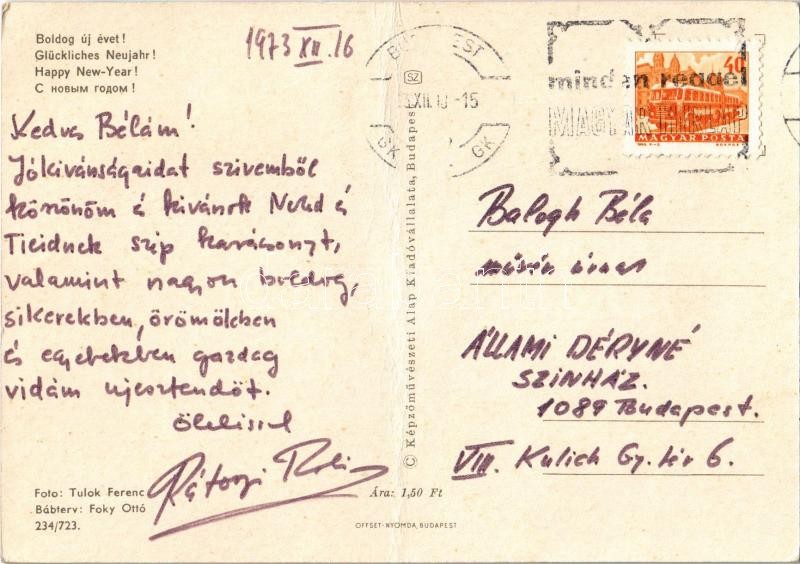 Boldog új évet!
Glückliches Neujahr!
Happy New-Year!
С новым годом!
1973 XII. 16
Kedves Bélám!
Jókivánságaidat szivemből
köszönöm és kivánok Neked és
Tieidnek szép karácsonyt,
valamint nagyon boldog,
sikerekben, örömökben
és egyebekben gazdag
vidám ujesztendőt.
Öleléssel
Rátonyi Robi
Foto: Tulok Ferenc
Bábterv: Foky Ottó
234/723.
Ára: 1,50 Ft
OFFSET-NYOMDA, BUDAPEST
© Képzőművészeti Alap Kiadóvállalata, Budapest
SZ
BUDAPEST
XII.16-15
GK GK
minden reggel
MAGYAR HIRLAP
40
MAGYAR POSTA
Balogh Béla
művész úrnak
ÁLLAMI DÉRYNÉ
SZINHÁZ.
1089 Budapest.
VIII. Kulich Gy. tér 6.